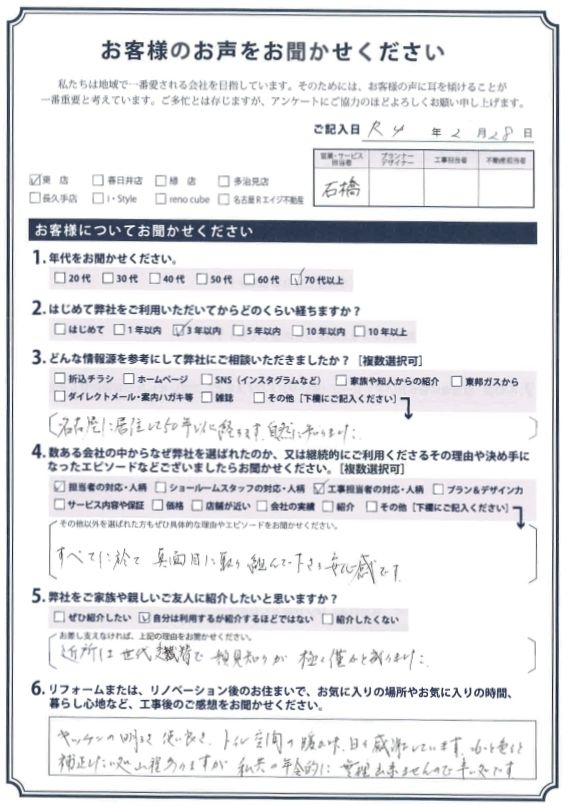 お客様のお声をお聞かせください
私たちは地域で一番愛される会社を目指しています。そのためには、お客様の声に耳を傾けることが
一番重要と考えています。ご多忙とは存じますが、アンケートにご協力のほどよろしくお願い申し上げます。
ご記入日 R4 年 2 月 28 日
営業・サービス担当者 プランナーデザイナー 工事担当者 不動産担当者
石橋
東店 春日井店 緑店 多治見店
長久手店 i・Style reno cube 名古屋Rエイジ不動産
お客様についてお聞かせください
1. 年代をお聞かせください。
20代 30代 40代 50代 60代 70代以上
2. はじめて弊社をご利用いただいてからどのくらい経ちますか？
はじめて 1年以内 3年以内 5年以内 10年以内 10年以上
3. どんな情報源を参考にして弊社にご相談いただきましたか？［複数選択可］
折込チラシ ホームページ SNS（インスタグラムなど） 家族や知人からの紹介 東邦ガスから
ダイレクトメール・案内ハガキ等 雑誌 その他［下欄にご記入ください］
名古屋に居住して50年以上経ちます 自然に知りました
4. 数ある会社の中からなぜ弊社を選ばれたのか、又は継続的にご利用くださるその理由や決め手に
なったエピソードなどございましたらお聞かせください。［複数選択可］
担当者の対応・人柄 ショールームスタッフの対応・人柄 工事担当者の対応・人柄 プラン＆デザイン力
サービス内容や保証 価格 店舗が近い 会社の実績 紹介 その他［下欄にご記入ください］
その他以外を選ばれた方もぜひ具体的な理由やエピソードをお聞かせください。
すべてに於て 真面目に取り組んで下さる 安心感です
5. 弊社をご家族や親しいご友人に紹介したいと思いますか？
ぜひ紹介したい 自分は利用するが紹介するほどではない 紹介したくない
お差し支えなければ、上記の理由をお聞かせください。
近所は世代で 顔見知りが 極く僅かと
6. リフォームまたは、リノベーション後のお住まいで、お気に入りの場所やお気に入りの時間、
暮らし心地など、工事後のご感想をお聞かせください。
キッチンの明るさ 使い良さ、トイレ空間の暖かさ、日々感謝しています。
補正したい処 山程ありますが 私共の年令的に 無理出来ませんので